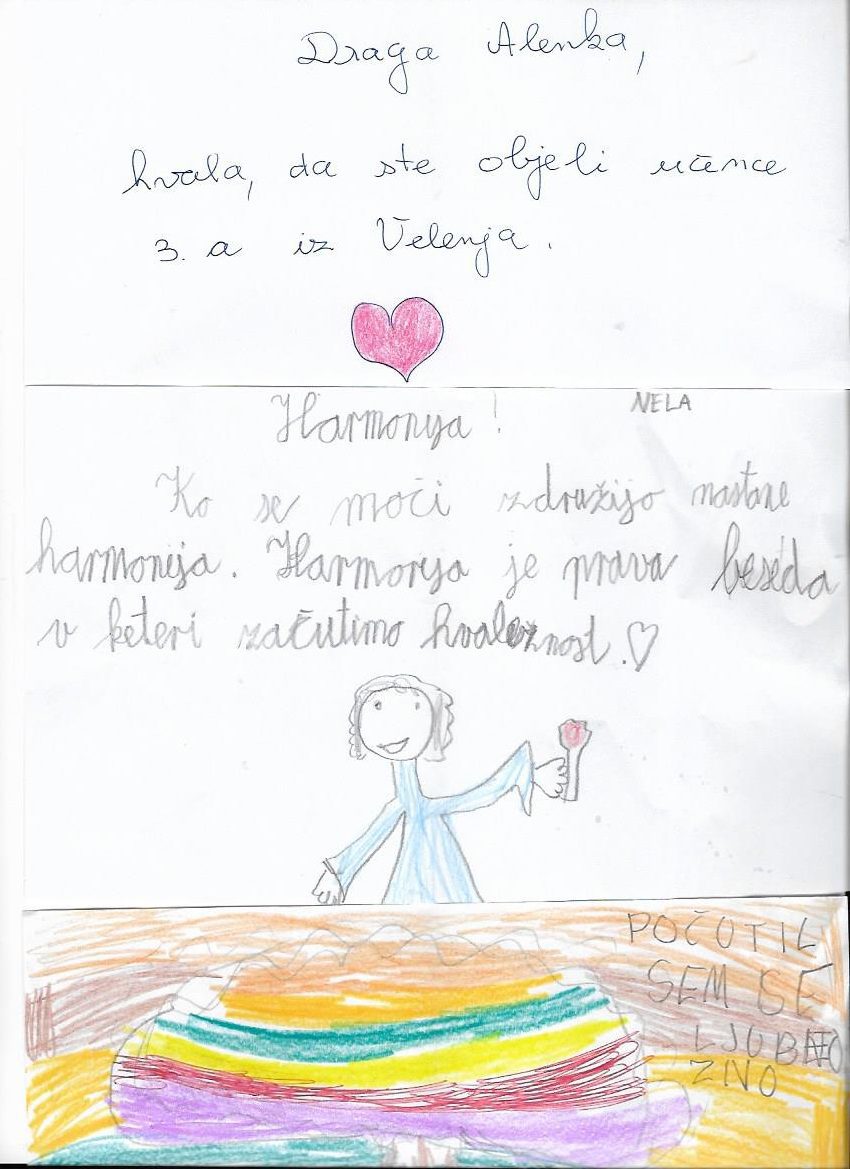 Draga Alenka,
hvala, da ste objeli učence
3. a iz Velenja.
Harmonija! NELA
Ko se moči združijo nastane
harmonija. Harmonija je prava beseda
v keteri začutimo hvaležnost.
POČUTIL
SEM SE
ZIVO